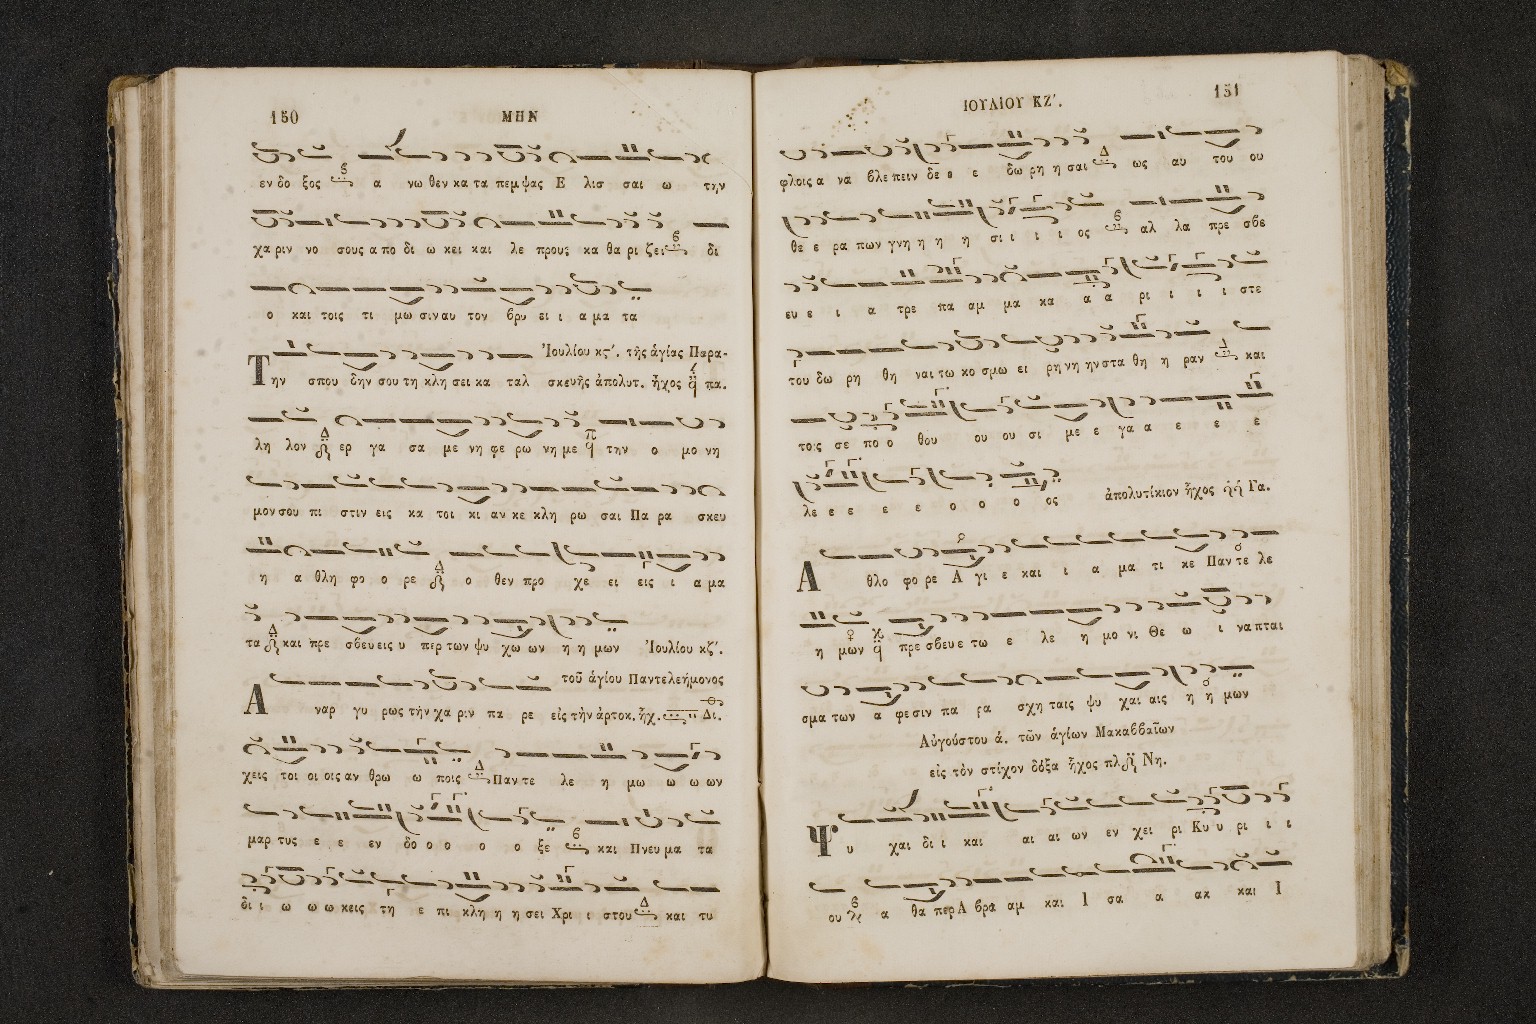 150
ΜΗΝ
εν δο ξος α νω θεν κα τα πεμ ψας Ε λισ σαι ω την
χα ριν νο σους α πο δι ω κει και λε πρους κα θα ρι ζει δι
ο και τοις τι μω σιν αυ τον βρυ ει ι α μα τα
Ἰουλίου κς΄. τῆς ἁγίας Παρα-
Την σπου δην σου τη κλη σει κα ταλ σκευῆς ἀπολυτ. ἦχος πα.
λη λον ερ γα σα με νη φε ρω νη με την ο μο νη
μον σου πι στιν εις κα τοι κι αν κε κλη ρω σαι Πα ρα σκευ
η α θλη φο ο ρε ο θεν προ χε ει εις ι α μα
τα και πρε σβευ εις υ περ των ψυ χω ων η η μων Ἰουλίου κζ΄.
τοῦ ἁγίου Παντελεήμονος
Α ναρ γυ ρως τὴν χα ριν πα ρε εἰς τὴν ἀρτοκ. ἦχ. Δι.
χεις τοι οι οις αν θρω ω ποις Παν τε λε η μω ω ω ων
μαρ τυς ε ε εν δο ο ο ο ο ξε και Πνευ μα τα
δι ι ω ω ω κεις τη ε πι κλη η η σει Χρι ι στου και τυ
ΙΟΥΛΙΟΥ ΚΖ΄.
151
φλοις α να βλε πειν δε ε ε δω ρη η σαι ως αυ του ου
θε ε ρα πων γνη η η η σι ι ι ι ος αλ λα πρε σβε
ευ ε ι α τρε πα αμ μα κα α α ρι ι ι ι στε
του δω ρη θη ναι τω κο σμω ει ρη νη ην στα θη η ραν και
τοις σε πο ο θου ου ου σι με ε γα α ε ε ε
λε ε ε ε ε ο ο ο ος ἀπολυτίκιον ἦχος Γα.
Α θλο φο ρε Α γι ε και ι α μα τι κε Παν τε λε
η μων πρε σβευ ε τω ε λε η μο νι Θε ω ι να πται
σμα των α φε σιν πα ρα σχη ταις ψυ χαι αις η η μων
Αὐγούστου ά. τῶν ἁγίων Μακαββαίων
εἰς τὸν στίχον δόξα ἦχος πλ Νη.
Ψυ χαι δι ι και αι αι ων εν χει ρι Κυ υ ρι ι ι
ου α θα περ Α βρα αμ και Ι σα α ακ και Ι